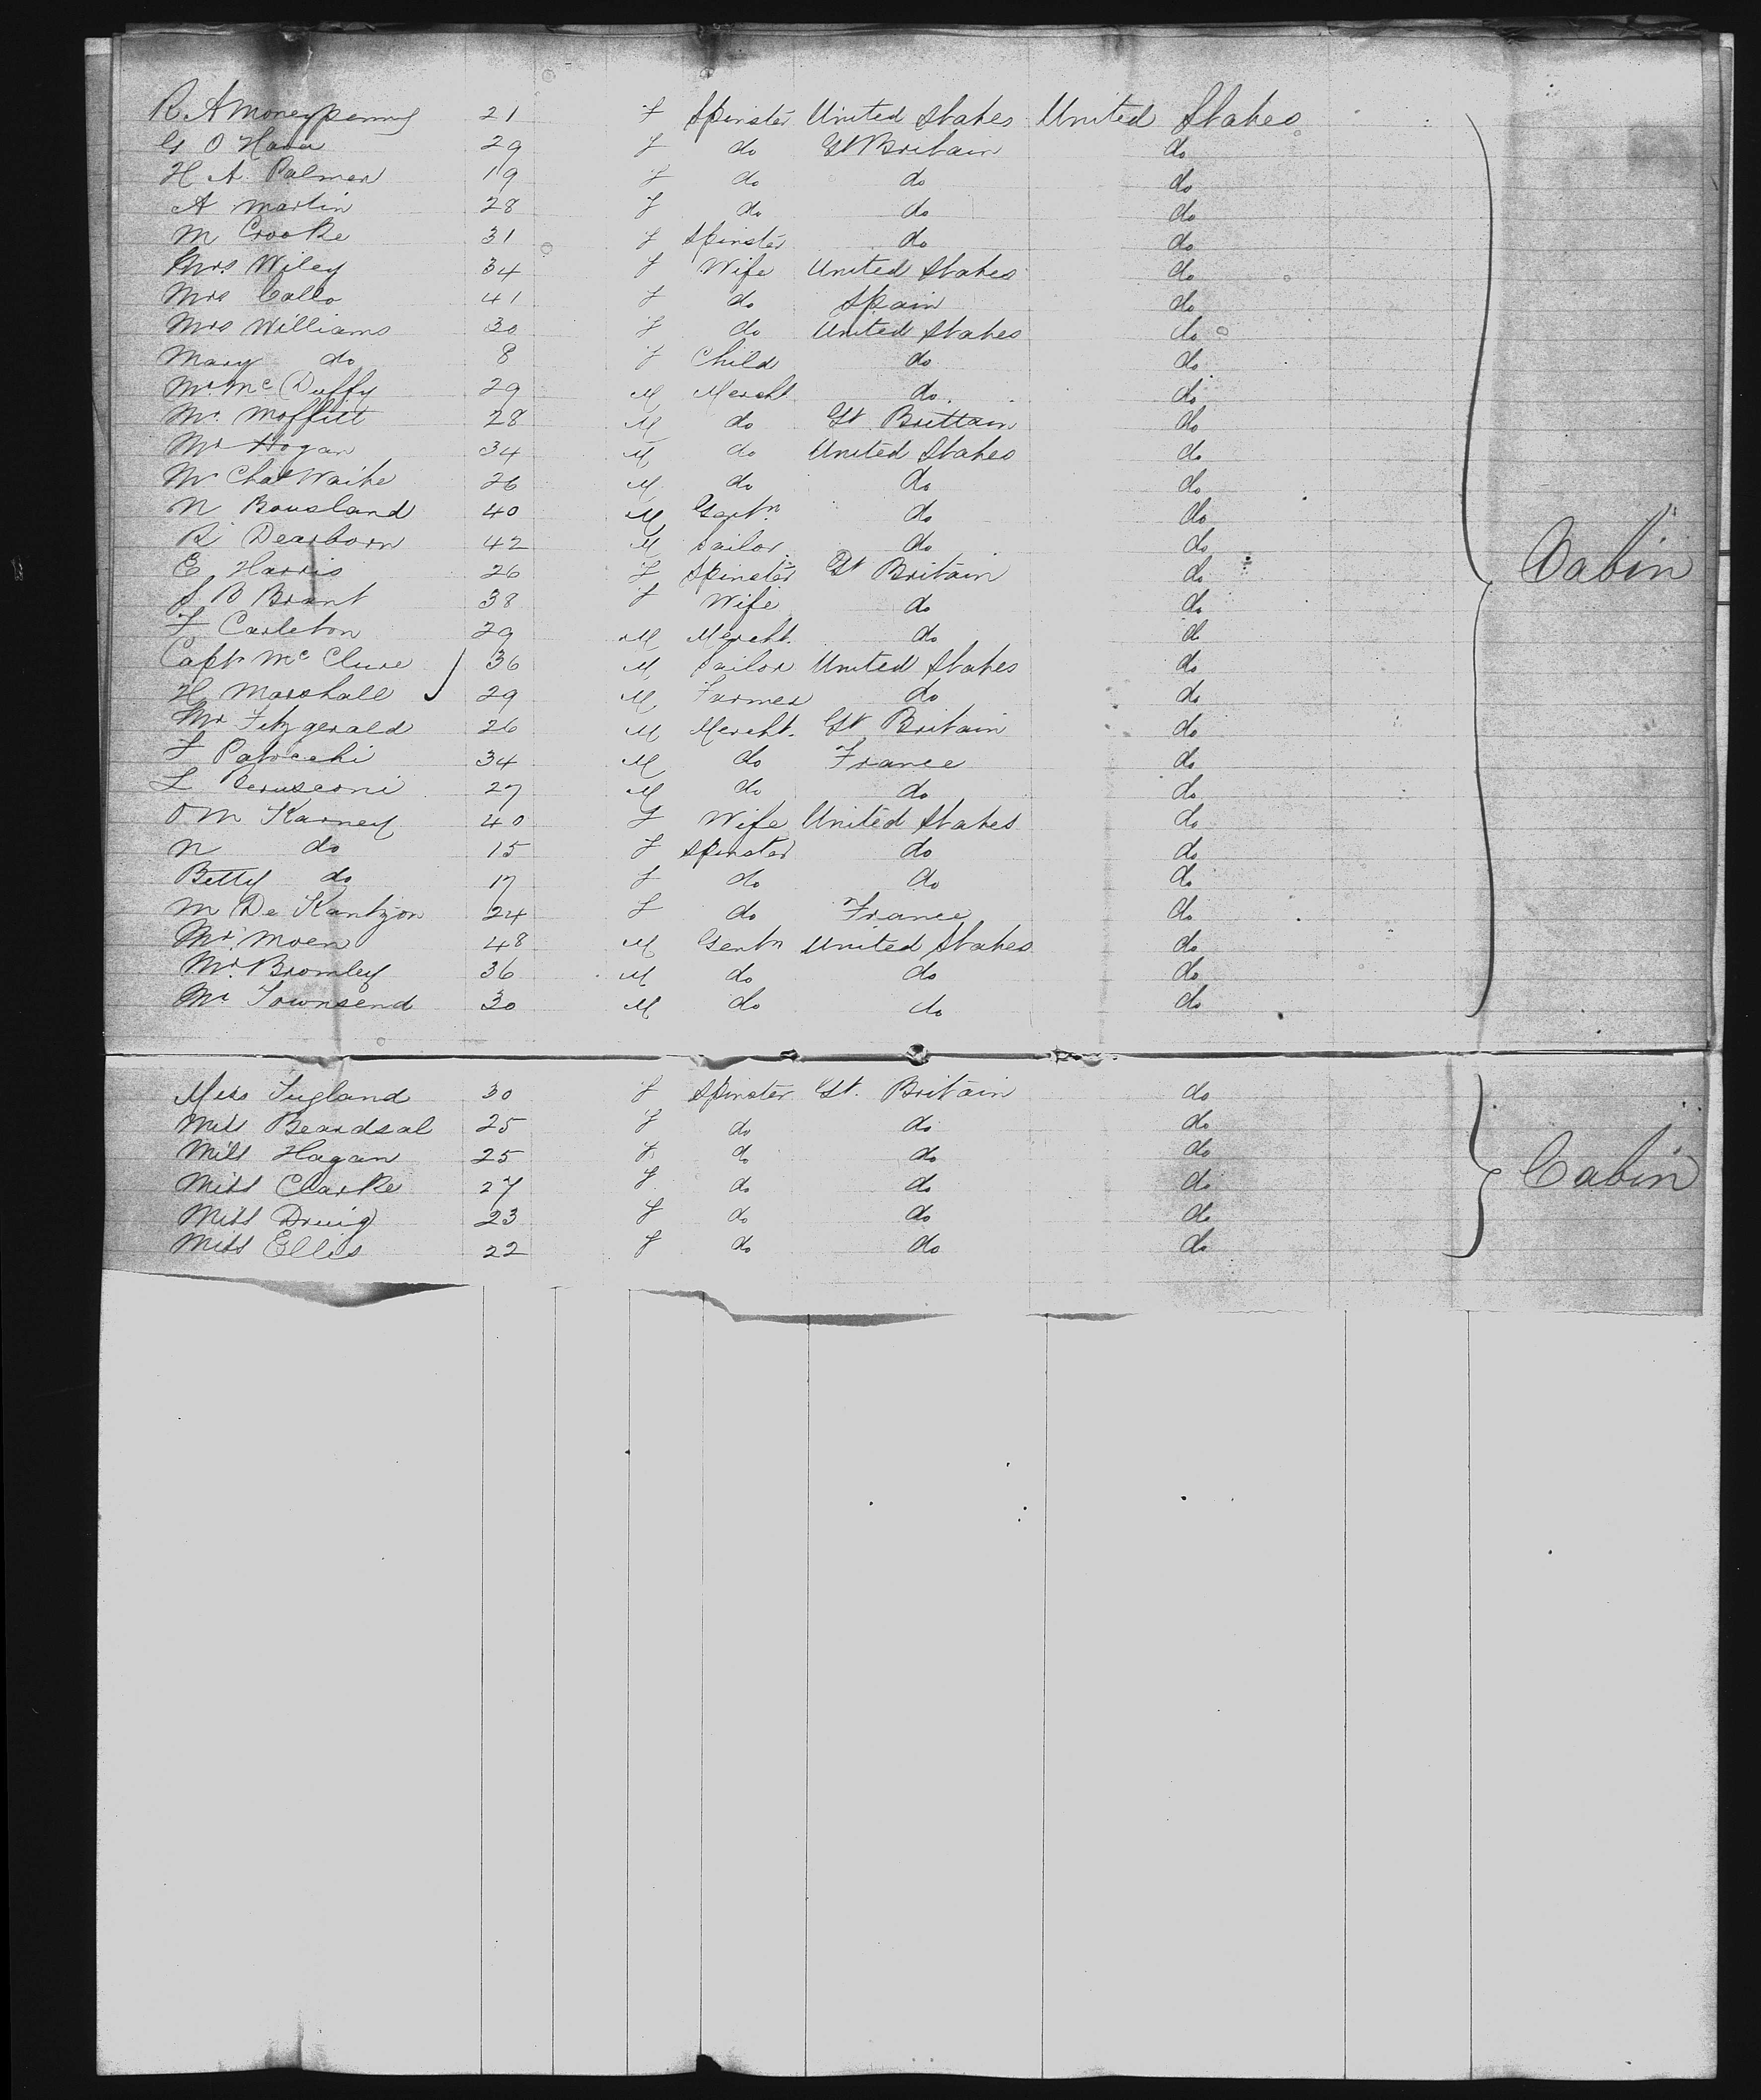 R A Moneypenny 21 F Spinster United States United States
G O Hara 29 F do Gt Britain do
H A Palmer 19 F do do do
A Martin 28 F do do do
M Crooke 31 F Spinster do do
Mrs Wiley 34 F Wife United States do
Mrs Callo 41 F do Spain do
Mrs Williams 30 F do United States do
Mary do 8 F Child do do
Mr. Mc Duffy 29 M Mercht do do
Mr. Moffitt 28 M do Gt Brittain do
Mr Hogan 34 M do United States do
Mr Chas Waite 26 M do do do
N Bousland 40 M Gent'n do do
R Dearborn 42 M Sailor do do
E Harris 26 F Spinster Gt Britain do
S B Brant 38 F Wife do do
F Carleton 29 M Mercht. do do
Capt Mc Clure 36 M Sailor United States do
H Marshall 29 M Farmer do do
Mr Fitzgerald 26 M Mercht. Gt Britain do
F Patocchi 34 M do France do
L 27 M do do do
O M Karney 40 F Wife United States do
N do 15 F Spinster do do
Betty do 17 F do do do
M De Kantzon 24 F do France do
Mr. Moen 48 M Gentn United States do
Mr. Bromley 36 M do do do
Mr Townsend 30 M do do do
Cabin
Miss 30 F Spinster Gt. Britain do
Miss Beardsal 25 F do do do
Miss Hagan 25 F do do do
Miss Clarke 27 F do do do
Miss 23 F do do do
Miss Ellis 22 F do do do
Cabin